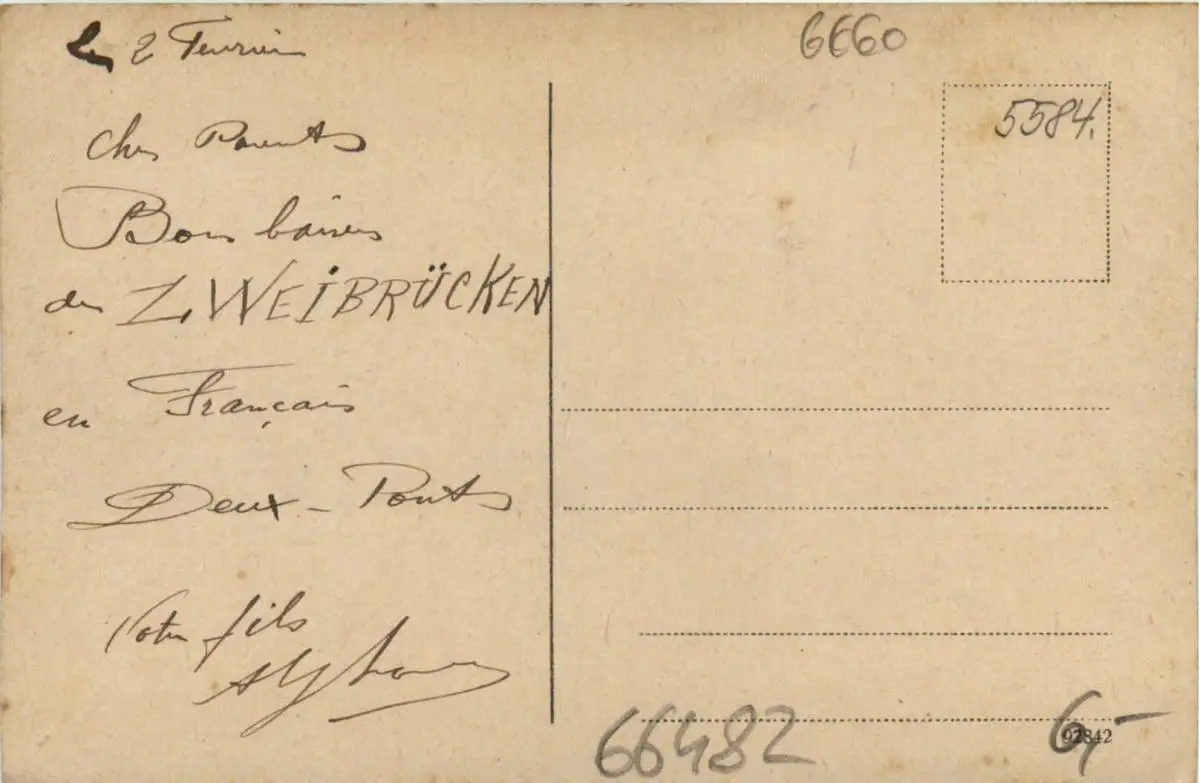 Le 2 Fevrier
Chers Parents
Bons baisers
de ZWEIBRÜCKEN
en Français
Deux-Ponts
Votre fils
Alphonse
6660
5584.
66482
6,-
92842